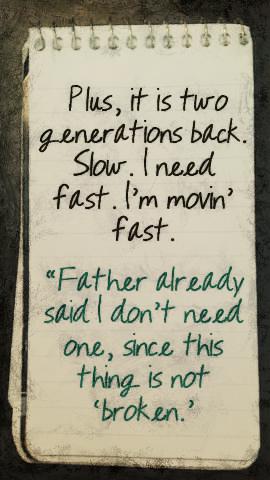 Plus, it is two
generations back.
Slow. I need
fast. I'm movin'
fast.
"Father already
said I don't need
one, since this
thing is not
'broken.'